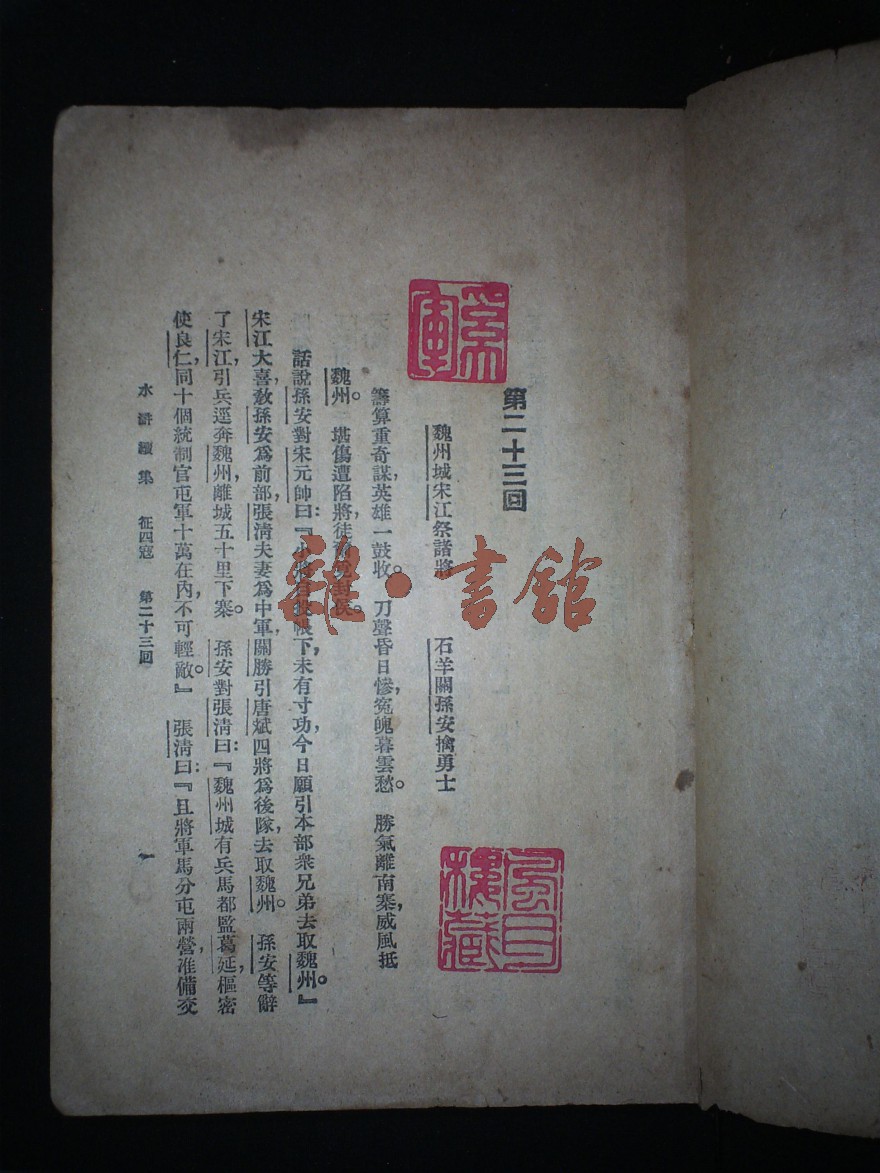 第二十三回
魏州城宋江祭諸將　石羊關孫安擒勇士
籌算重奇謀，英雄一鼓收。刀聲昏日慘，寃魄暮雲愁。勝氣離南寨，威風抵
魏州。堪傷遭陷將，徒封侯。
話說孫安對宋元帥曰：『小將自投帳下，未有寸功，今日願引本部衆兄弟去取魏州。』
宋江大喜，敎孫安爲前部，張淸夫妻爲中軍，關勝引唐斌四將爲後隊，去取魏州。孫安等辭
了宋江，引兵逕奔魏州，離城五十里下寨。孫安對張淸曰：『魏州城有兵馬都監葛延，樞密
使良仁，同十個統制官，屯軍十萬在內，不可輕敵。』張淸曰：『且將軍馬分屯兩營，准備交
水滸續集　征四寇　第二十三回　一
雜·書館